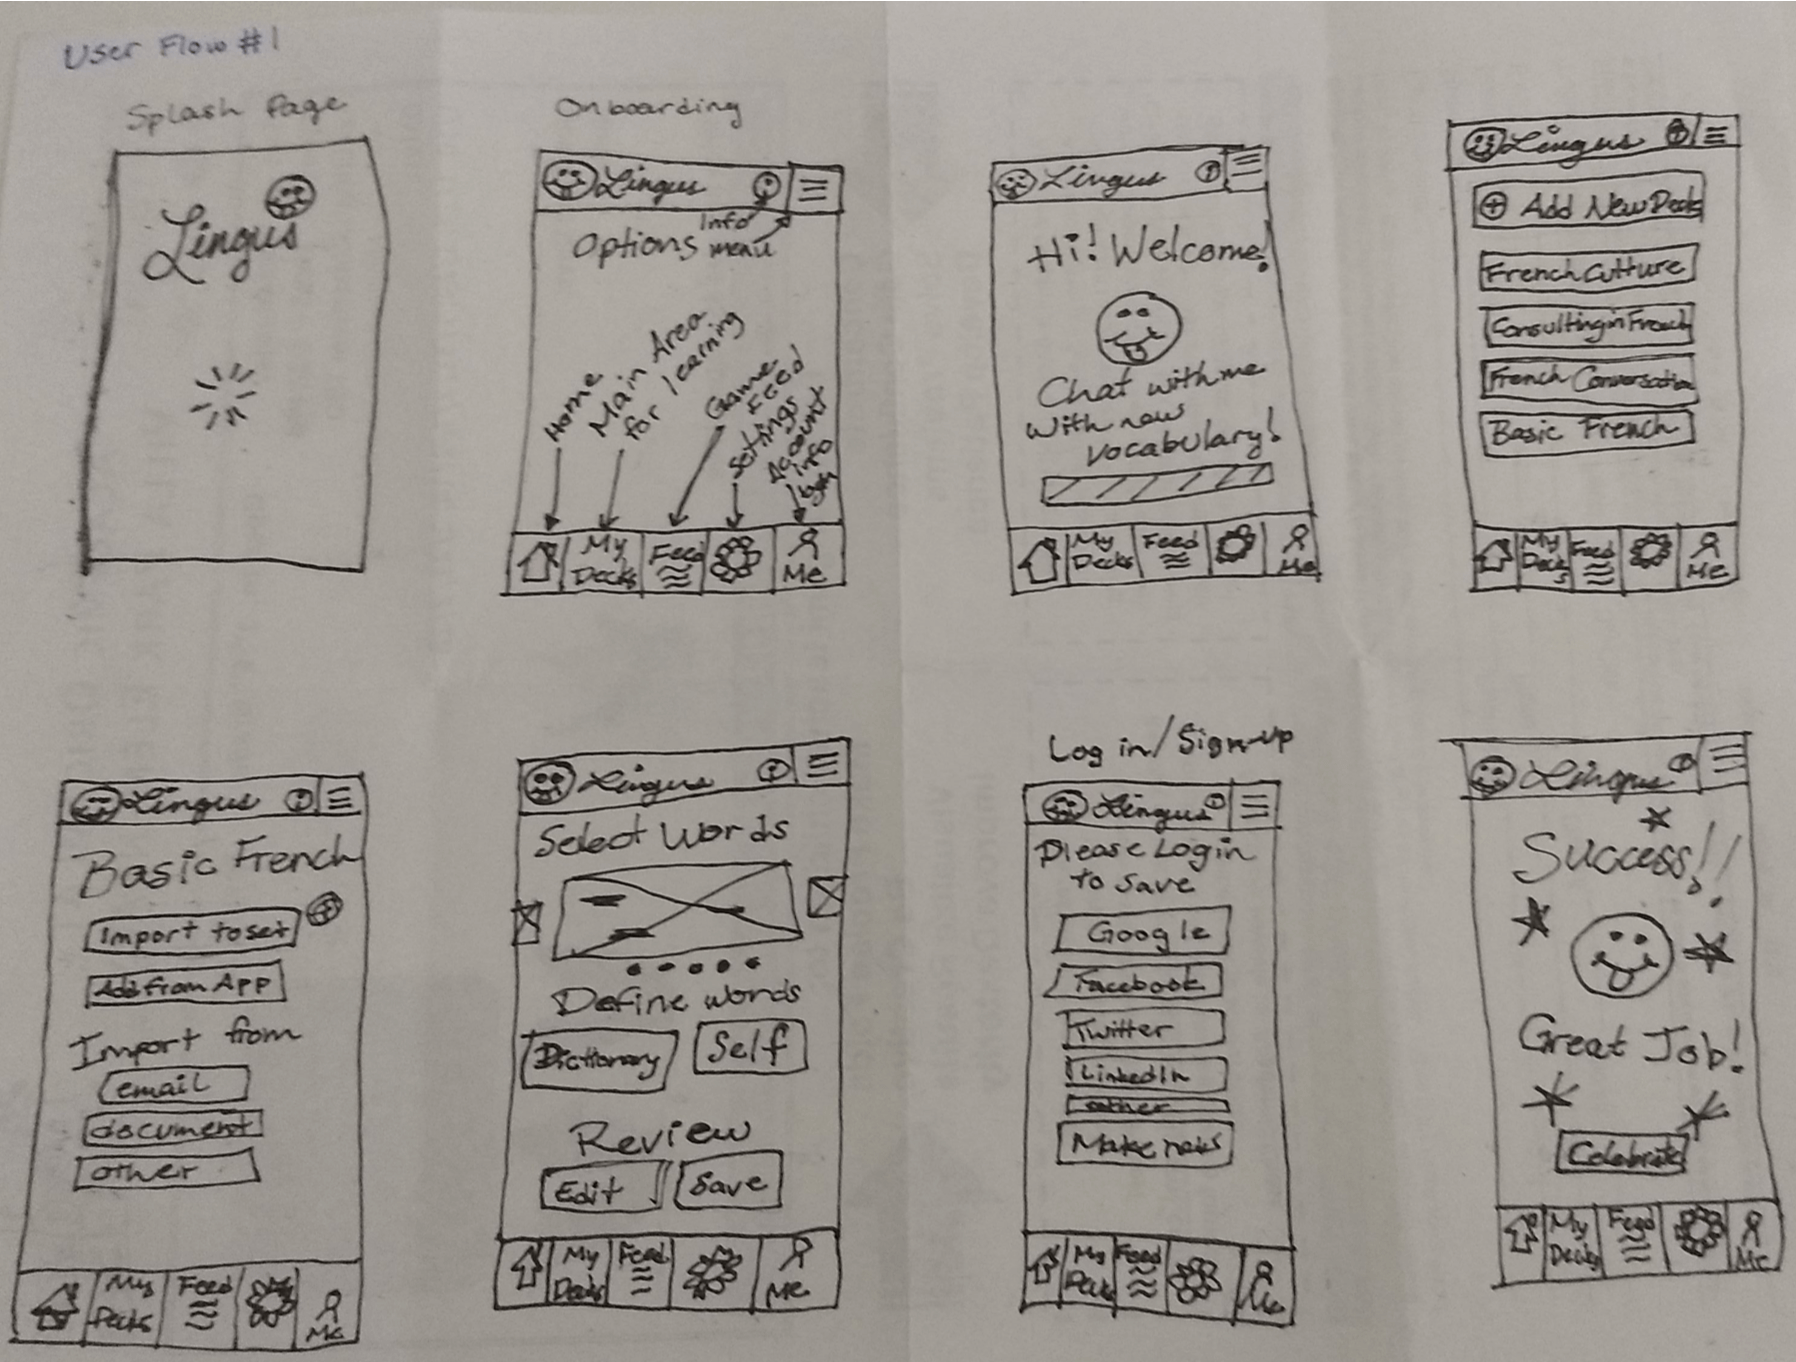 User Flow #1
Splash Page
Lingus
Onboarding
Lingus
Info
Options menu
Home
Main Area
for learning
Game
Feed
Settings
Account
Info
My
Decks
Feed
Me
Lingus
Hi! Welcome!
Chat with me
with new
vocabulary!
My
Decks
Feed
Me
Lingus
Add New Deck
French Culture
Consulting in French
French Conversation
Basic French
My
Decks
Feed
Me
Lingus
Basic French
Import to set
Add from App
Import from
email
document
other
My
Decks
Feed
Me
Lingus
Select Words
Define words
Dictionary
Self
Review
Edit
Save
My
Decks
Feed
Me
Log in/Sign-up
Lingus
Please Login
to save
Google
Facebook
Twitter
LinkedIn
other
My
Decks
Feed
Me
Lingus
Success!!
Great Job!
Celebrate
My
Decks
Feed
Me